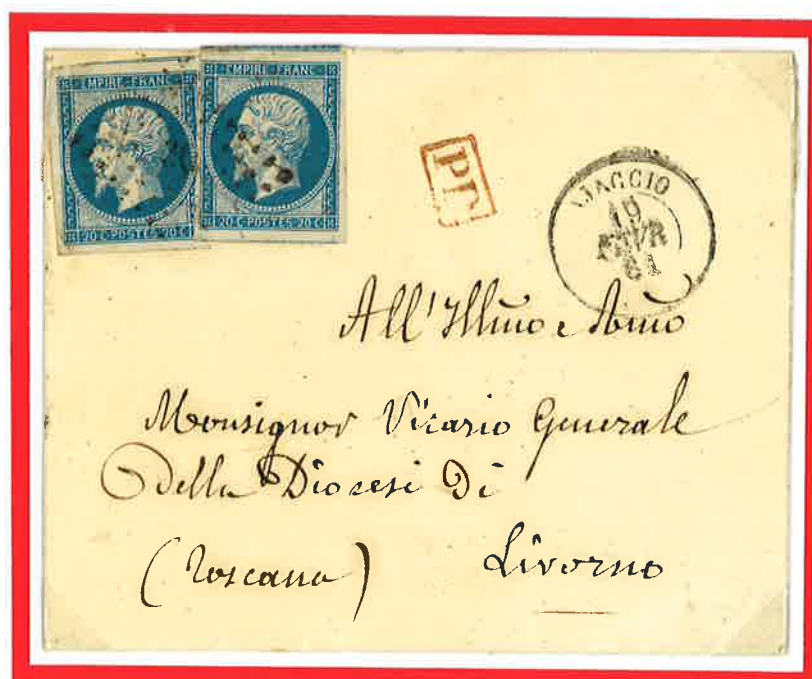 EMPIRE FRANC
20 C POSTES 20 C
EMPIRE FRANC
20 C POSTES 20 C
AJACCIO
19
FEVR
61
All' Illmo e Rmo
Monsignor Vicario Generale
della Diocesi Di
(Toscana) Livorno